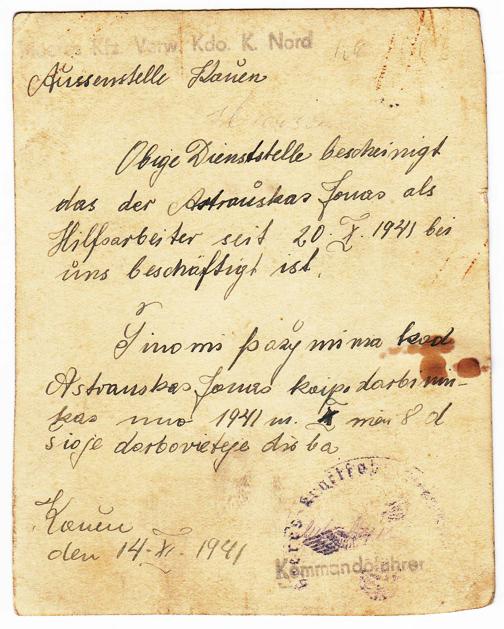 Heeres Kfz. Verw. Kdo. K. Nord
Aussenstelle Kauen
Obige Dienststelle bescheinigt
das der Astrauskas Jonas als
Hilfsarbeiter seit 20. X. 1941 bei
uns beschäftigt ist.
Šinomi pažymima kad
Astrauskas Jonas kaipo darbinin-
kas nuo 1941 m. X mėn 8 d
sioje darbovietėje dirba
Kauen
den 14-XI. 1941
Kommandoführer